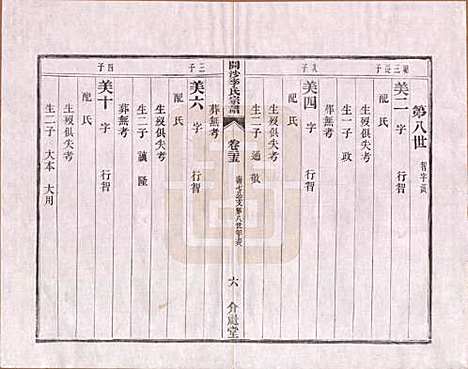 第八世
智字派
美二 字 行智
配 氏
生歿俱失考
葬無考
生一子 政
次子
美四 字 行智
配 氏
生歿俱失考
生二子 通 敬
開沙李氏宗譜
卷之五
六
三子
葬無考
美六 字 行智
配 氏
生歿俱失考
葬無考
生二子 誠 隆
四子
美十 字 行智
配 氏
生歿俱失考
生二子 大本 大用